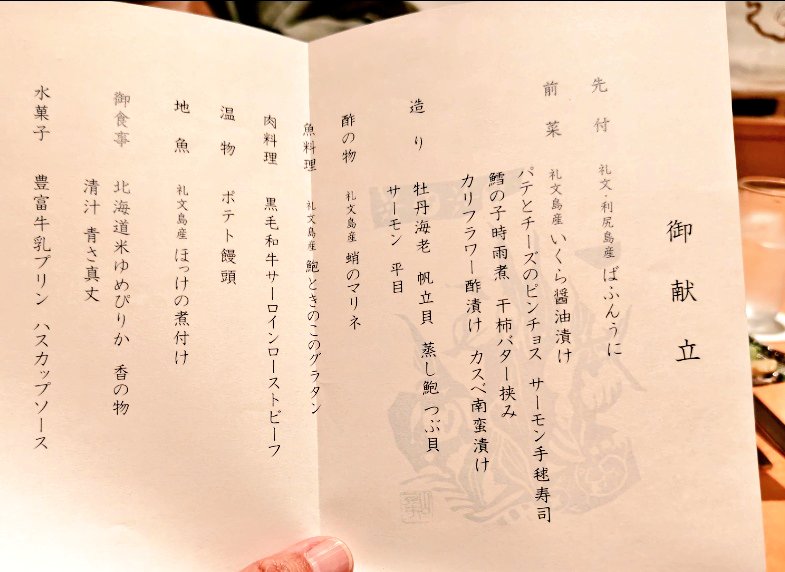 御献立
先付 礼文・利尻島産 ばふんうに
前菜 礼文島産 いくら醤油漬け
パテとチーズのピンチョス サーモン手毬寿司
鱈の子時雨煮 干柿バター挟み
カリフラワー酢漬け カスベ南蛮漬け
造り 牡丹海老 帆立貝 蒸し鮑 つぶ貝
サーモン 平目
酢の物 礼文島産 蛸のマリネ
魚料理 礼文島産 鮑ときのこのグラタン
肉料理 黒毛和牛サーロインローストビーフ
温物 ポテト饅頭
地魚 礼文島産 ほっけの煮付け
御食事 北海道米ゆめぴりか 香の物
清汁 青さ真丈
水菓子 豊富牛乳プリン ハスカップソース